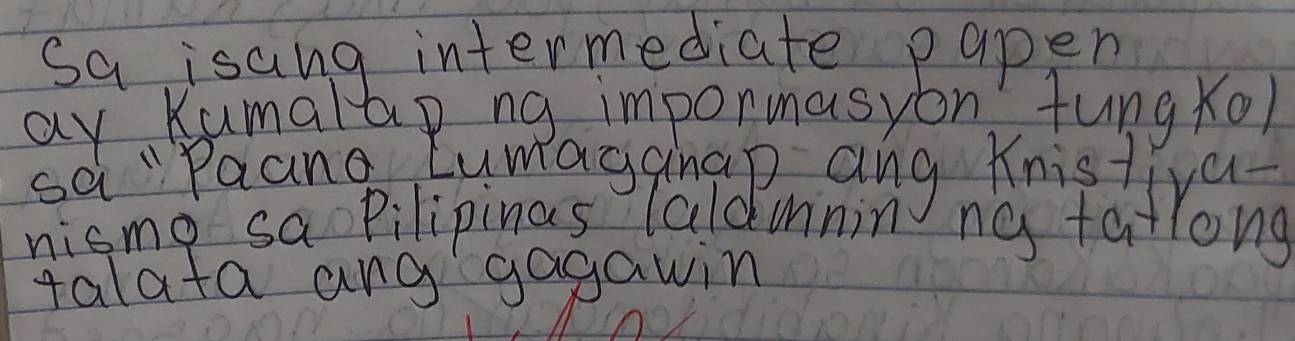 Sa isang intermediate paper
ay Kumalap ng impormasyon tungkol
sa "Paano Lumaganap ang Kristiya-
nismo sa Pilipinas lalamnin ng tatlong
talata ang gagawin